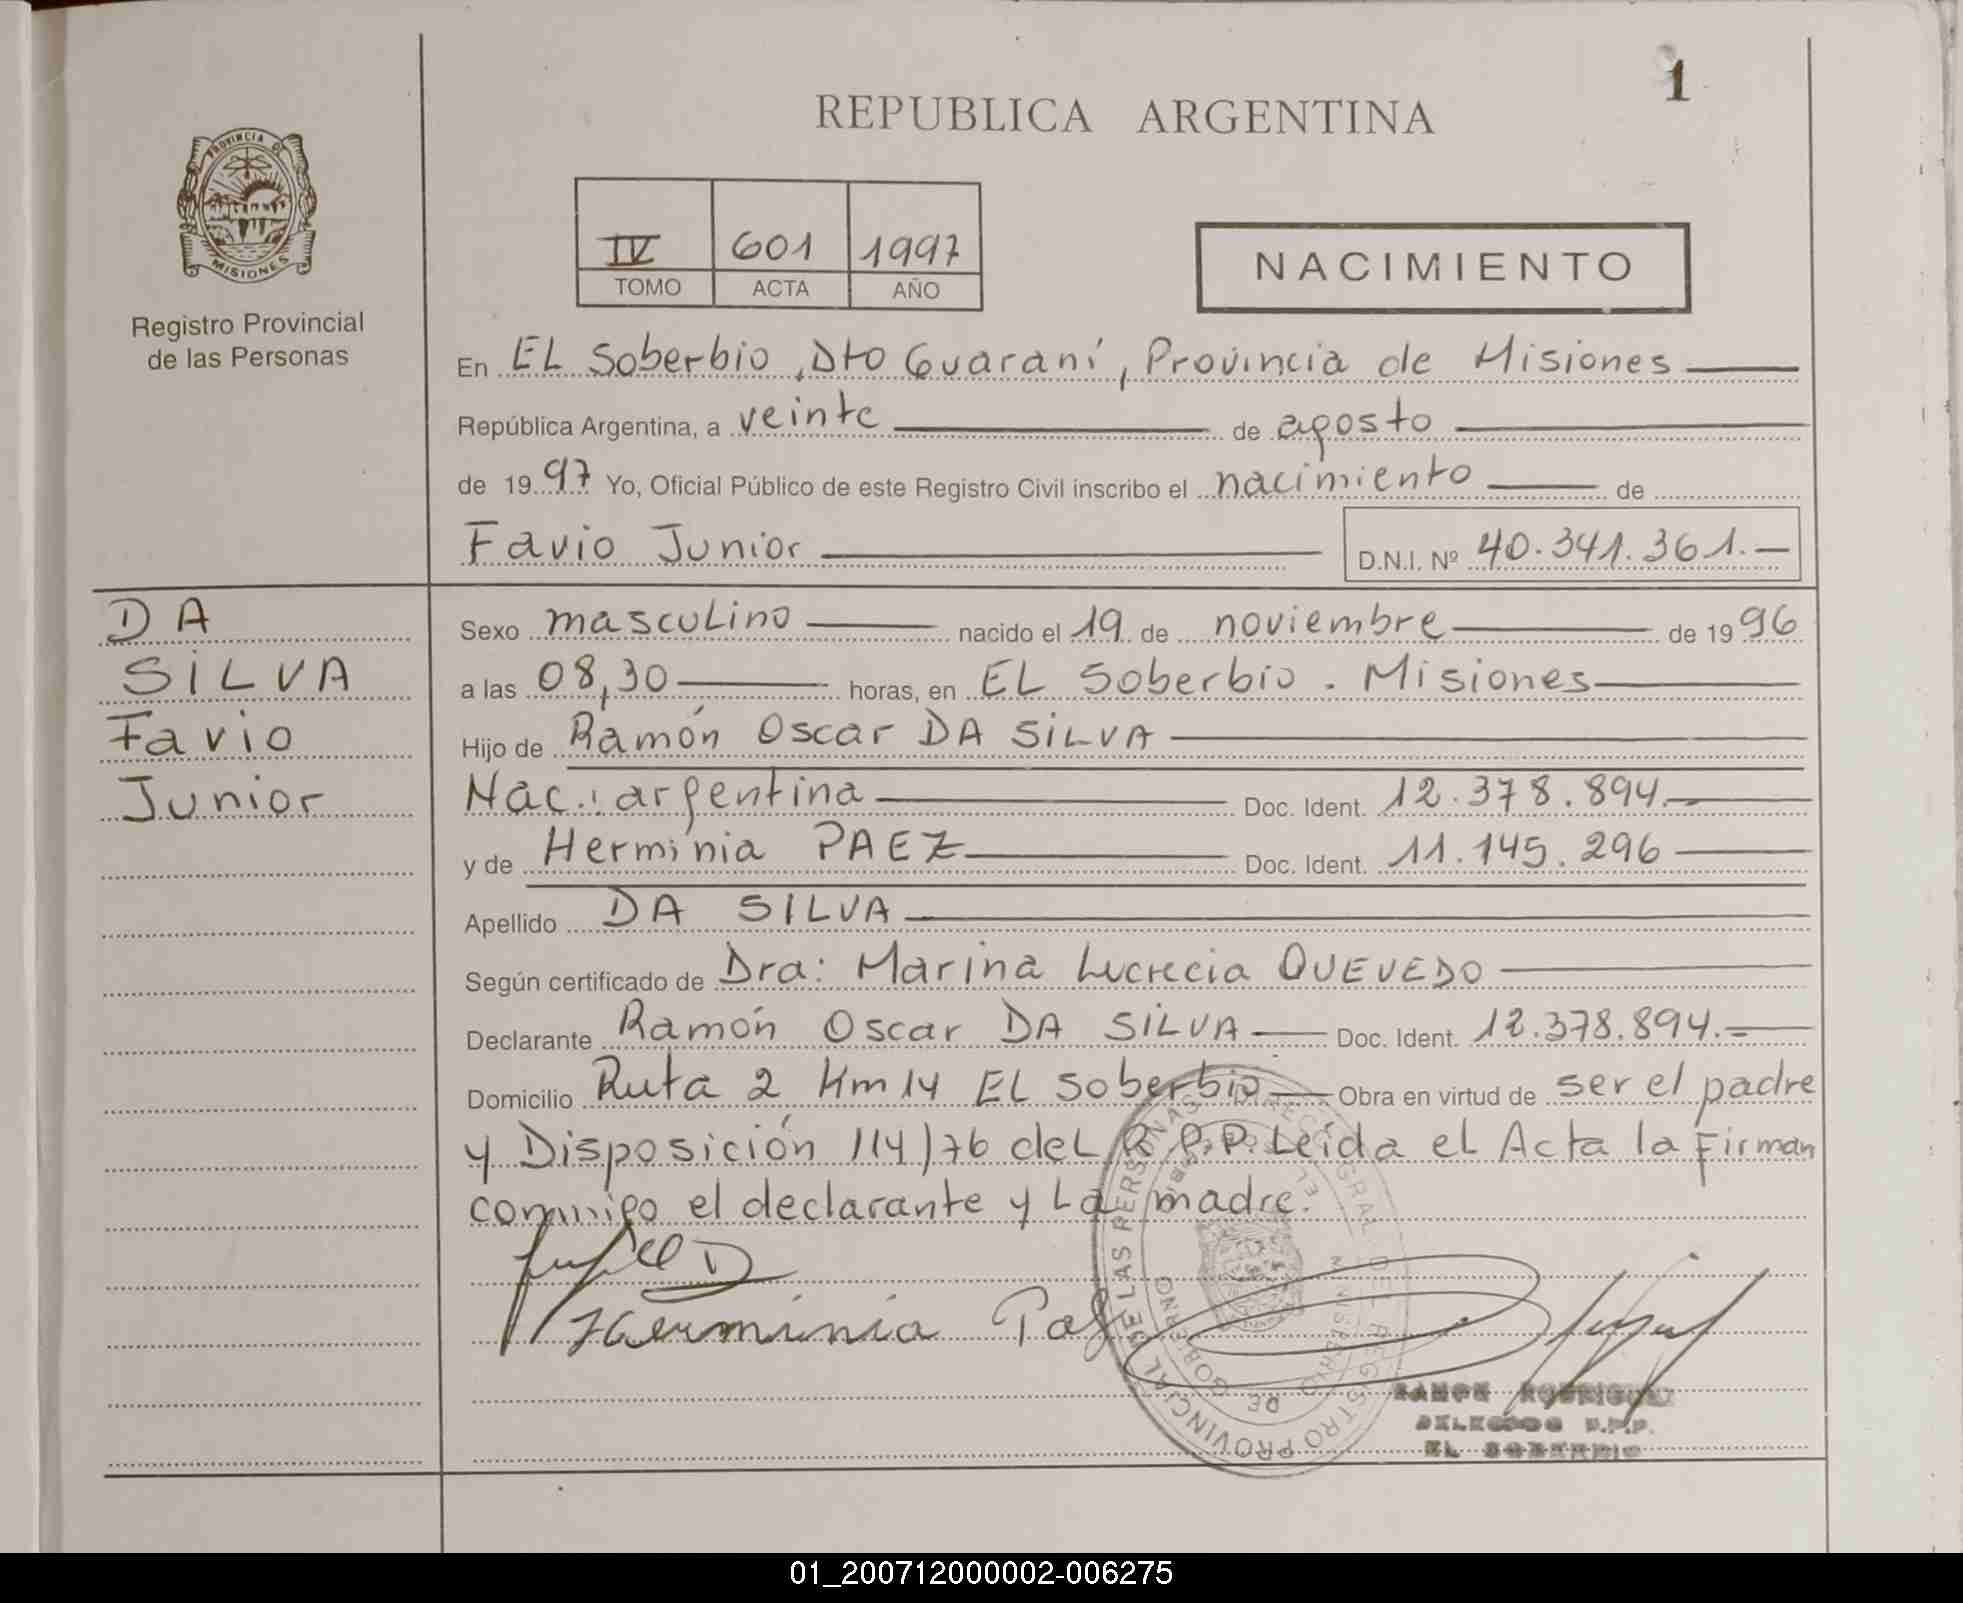 1
REPUBLICA ARGENTINA
PROVINCIA DE
MISIONES
Registro Provincial
de las Personas
IV 601 1997
TOMO ACTA AÑO
NACIMIENTO
En EL Soberbio, Dto Guaraní, Provincia de Misiones
República Argentina, a veinte de agosto
de 1997 Yo, Oficial Público de este Registro Civil inscribo el nacimiento de
Favio Junior D.N.I. Nº 40.341.361.-
DA
SILVA
Favio
Junior
Sexo masculino nacido el 19 de noviembre de 1996
a las 08,30 horas, en EL Soberbio. Misiones
Hijo de Ramón Oscar DA SILVA
Nac.: argentina Doc. Ident. 12.378.894.-
y de Herminia PAEZ Doc. Ident. 11.145.296
Apellido DA SILVA
Según certificado de Dra: Marina Lucrecia QUEVEDO
Declarante Ramón Oscar DA SILVA Doc. Ident. 12.378.894.-
Domicilio Ruta 2 Km 14 EL Soberbio Obra en virtud de ser el padre
y Disposición 114/76 del R.P.P. Leída el Acta la Firman
conmigo el declarante y La madre.
Herminia
REGISTRO PROVINCIAL DE LAS PERSONAS
MINISTERIO DE GOBIERNO
RAMON RODRIGUEZ
DELEGADO R.P.P.
EL SOBERBIO
01_200712000002-006275